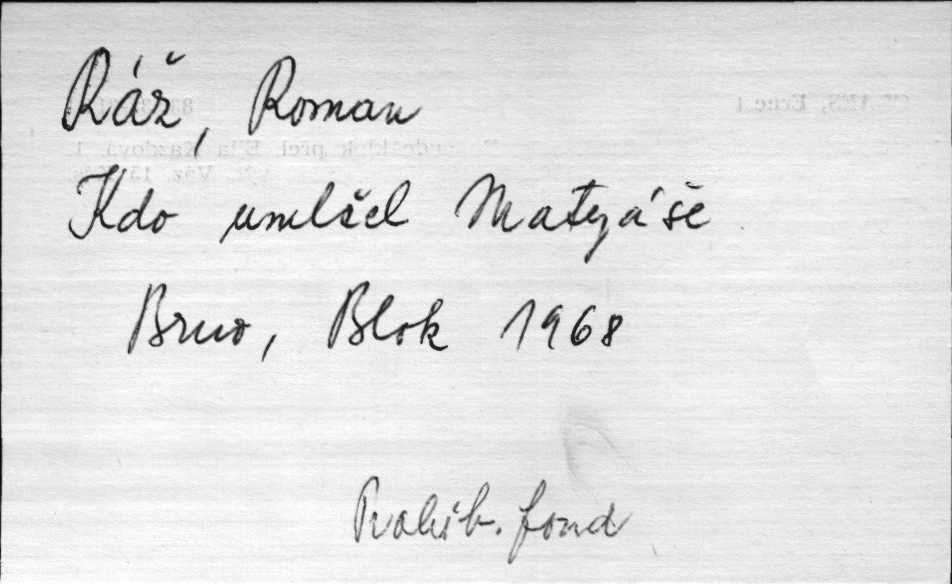 Ráž, Roman
Kdo umlčel Matyáše
Brno, Blok 1968
fond